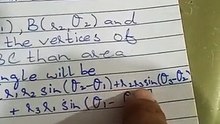 1), B(r₂, θ₂) and
the vertices of
BC than area
ngle will be
r₁r₂ sin(θ₂-θ₁)+r₂r₃ sin(θ₃-θ₂)
+ r₃r₁ sin(θ₁-